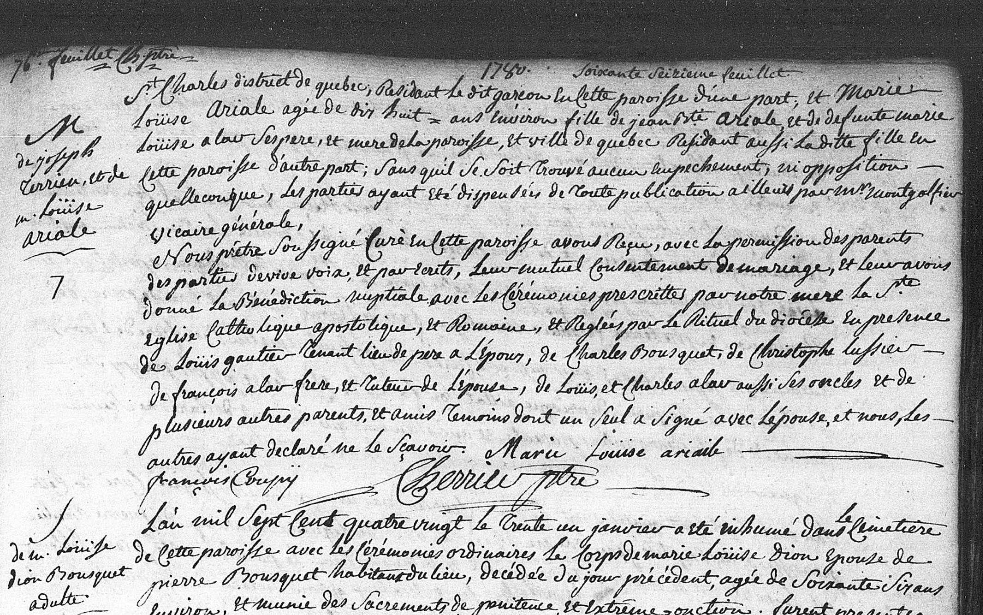 76e feuillet Ch. ptre
1780. Soixante Seizieme feuillet
St Charles district de quebec, Residant le dit garcon En Cette paroisse d'une part, et Marie
Loüise Ariale agée de dix huit = ans Environ fille de jean Bte Ariale et de defunte marie
Loüise alav Ses pere, et mere de La paroisse, et ville de québec Residant aussi La ditte fille En
Cette paroisse d'autre part; Sans quil Se Soit Trouvé aucun Empechement, ni opposition
quelleconque, Les parties ayant été dispensées de Toute publication ailleurs par mr. montgolfier
vicaire générale,
M
de joseph
Terrien, et de
m. Loüise
ariale
7
Nous prêtre Soussigné Curé En Cette paroisse avons Reçu, avec La permission des parents
des parties de vive voix, et par ecrits, Leur mutuel Consentement de mariage, et Leur avons
donné La Bénédiction nuptiale avec Les Cérémonies prescrittes par notre mere La Ste
Eglise Catholique apostolique, et Romaine, et Reglées par Le Rituel du diocèse En presence
de Loüis gautier Tenant lieu de pere a L'Epoux, de Charles Bousquet, de Christophe Lussier
de françois alav frere, et Tuteur de L'épouse, de Loüis, et Charles alav aussi Ses oncles et de
plusieurs autres parents, et amis Temoins dont un Seul a Signé avec L'épouse, et nous, Les
autres ayant declaré ne Le Sçavoir. Marie Louise ariaile
françois
Cherrier ptre
S
de m. Loüise
dion Bousquet
adulte
L'an mil Sept Cent quatre vingt le Trente un janvier a eté inhumé dans Le Cimetière
de Cette paroisse avec Les Cérémonies ordinaires Le Corps de marie Loüise Dion Epouse de
pierre Bousquet habitant du lieu, decédée du jour précédent, agée de Soixante Six ans
Environ, et munie des Sacrements de penitence, et Extreme onction. furent presents